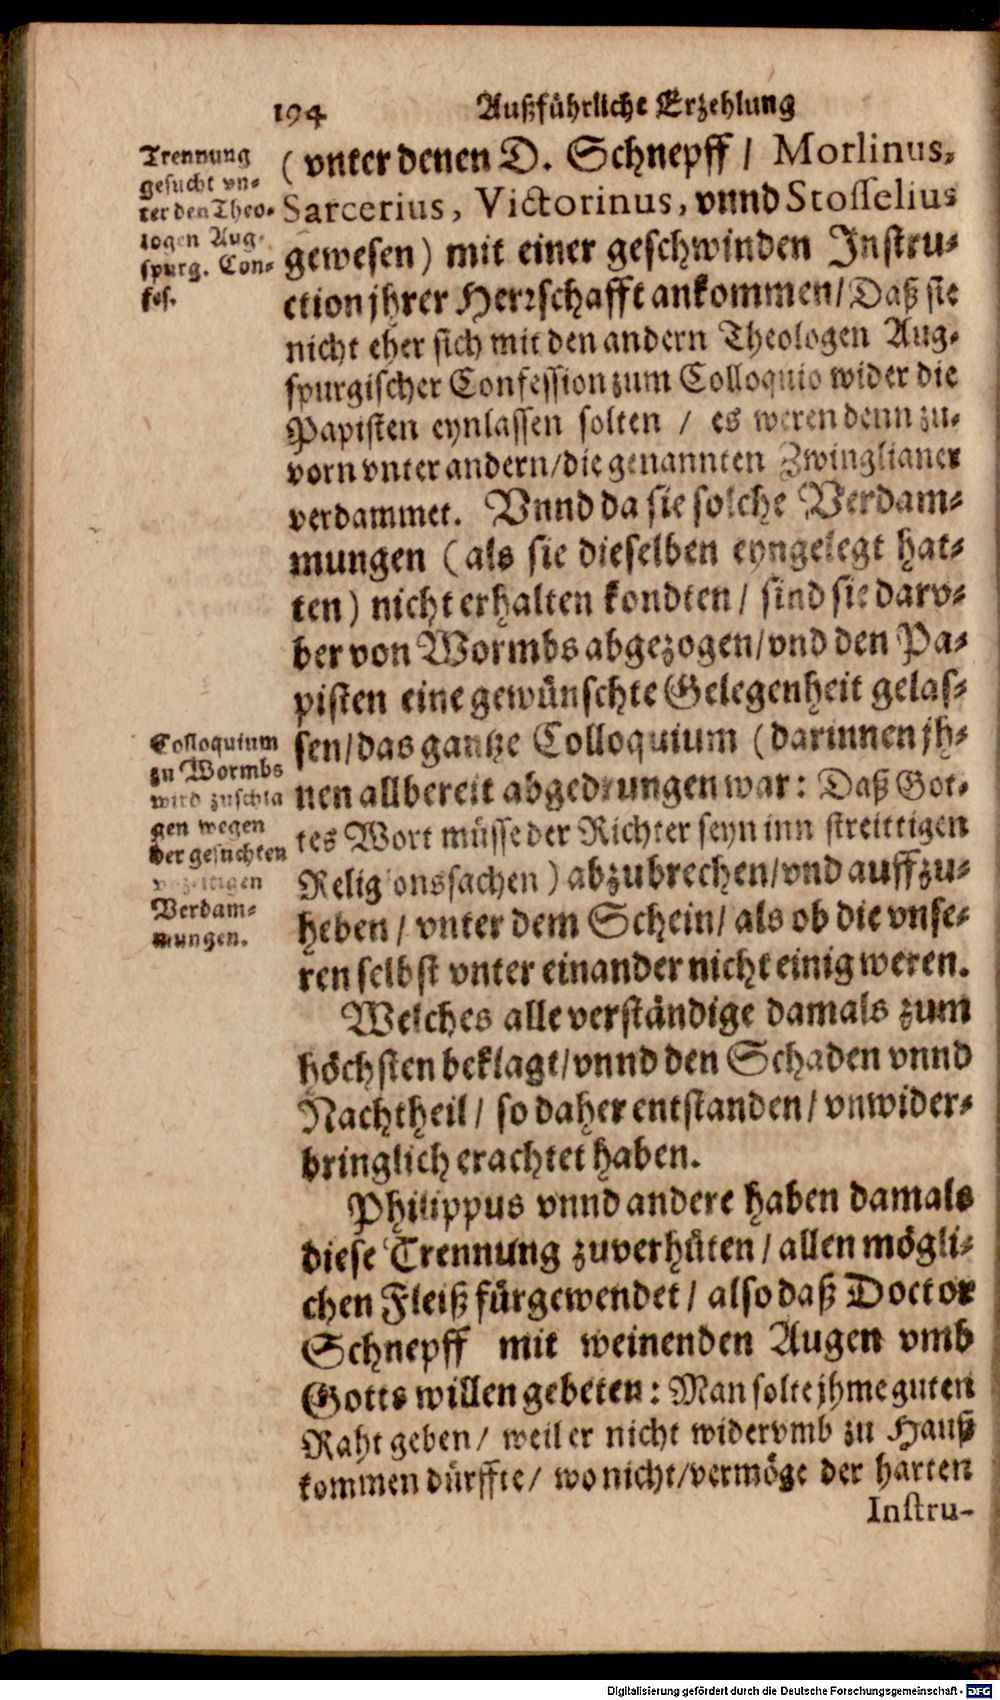 194 Außführliche Erzehlung
Trennung
gesucht vn-
ter den Theo-
logen Aug-
spurg. Con-
fes.
(vnter denen D. Schnepff / Morlinus,
Sarcerius, Victorinus, vnnd Stosselius
gewesen) mit einer geschwinden Instru-
ction jhrer Herrschafft ankommen / Daß sie
nicht eher sich mit den andern Theologen Aug-
spurgischer Confession zum Colloquio wider die
Papisten eynlassen solten / es weren denn zu-
vorn vnter andern / die genannten Zwinglianer
verdammet. Vnnd da sie solche Verdam-
mungen (als sie dieselben eyngelegt hat-
ten) nicht erhalten kondten / sind sie darv-
ber von Wormbs abgezogen / vnd den Pa-
pisten eine gewünschte Gelegenheit gelas-
sen / das gantze Colloquium (darinnen jh-
nen allbereit abgedrungen war: Daß Got-
tes Wort müsse der Richter seyn inn streittigen
Religionssachen) abzubrechen / vnd auffzu-
heben / vnter dem Schein / als ob die vnse-
ren selbst vnter einander nicht einig weren.
Colloquium
zu Wormbs
wird zuschla
gen wegen
der gesuchten
vnzeitigen
Verdam-
mungen.
Welches alle verständige damals zum
höchsten beklagt / vnnd den Schaden vnnd
Nachtheil / so daher entstanden / vnwider-
bringlich erachtet haben.
Philippus vnnd andere haben damals
diese Trennung zuverhüten / allen mögli-
chen Fleiß fürgewendet / also daß Doctor
Schnepff mit weinenden Augen vmb
Gotts willen gebeten: Man solte jhme guten
Raht geben / weil er nicht widervmb zu Hauß
kommen dürffte / wo nicht / vermöge der harten
Instru-
Digitalisierung gefördert durch die Deutsche Forschungsgemeinschaft - DFG